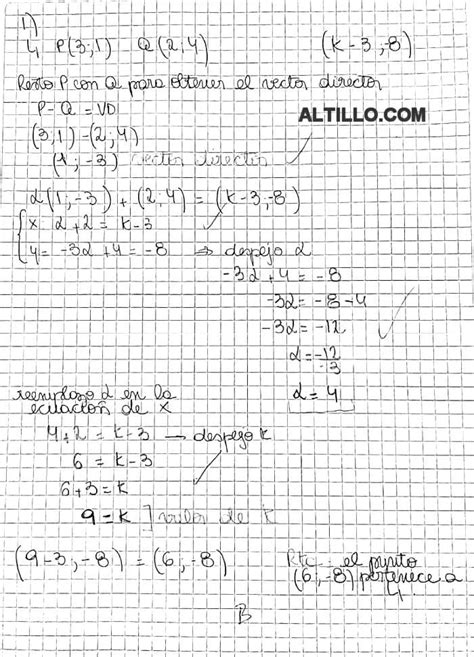 1)
L P(3;1) Q(2,4) (k-3;-8)
Resto P con Q para obtener el vector director
P-Q = VD
ALTILLO.COM
(3,1)-(2;4)
(1;-3) vector director
α(1;-3)+(2,4)=(k-3;-8)
x: α+2=k-3
y= -3α+4=-8 ⇒ despejo α
-3α+4=-8
-3α=-8-4
-3α=-12
α=-12/-3
α=4
reemplazo α en la
ecuación de x
4+2=k-3 → despejo k
6=k-3
6+3=k
9=k ] valor de k
(9-3;-8)=(6;-8)
Rta: el punto
(6;-8) pertenece a
L
B